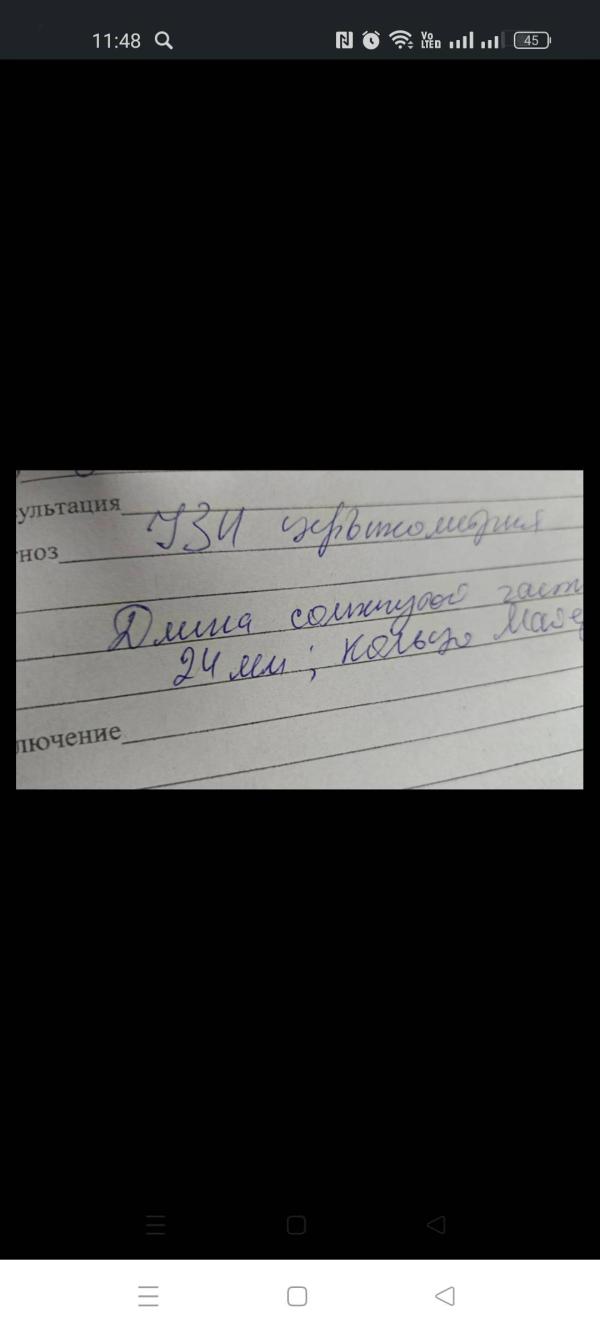 11:48
Vo
LTED
45
ультация
УЗИ цервикометрия
ноз
Длина сомкнутой част
24 мм; кольцо
лючение